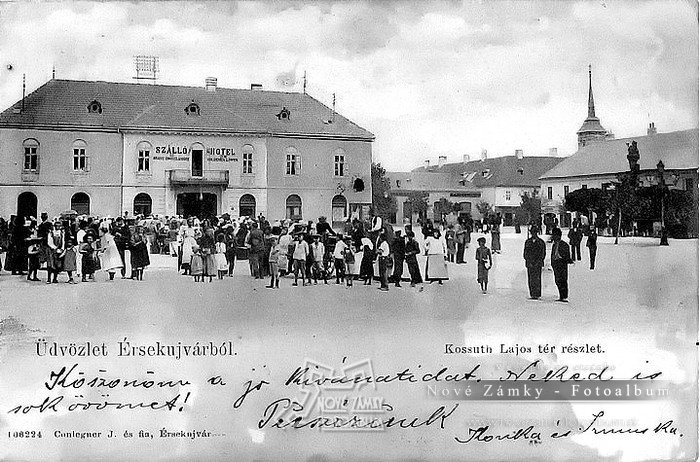 SZÁLLÓ HOTEL
Üdvözlet Érsekujvárból.
Kossuth Lajos tér részlet.
Köszönöm a jó kivánatidat. Neked is
sok örömet!
Nové Zámky - Fotoalbum
NOVÉ ZÁMKY
106224 Conlegner J. és fia, Érsekujvár
Ilonka és